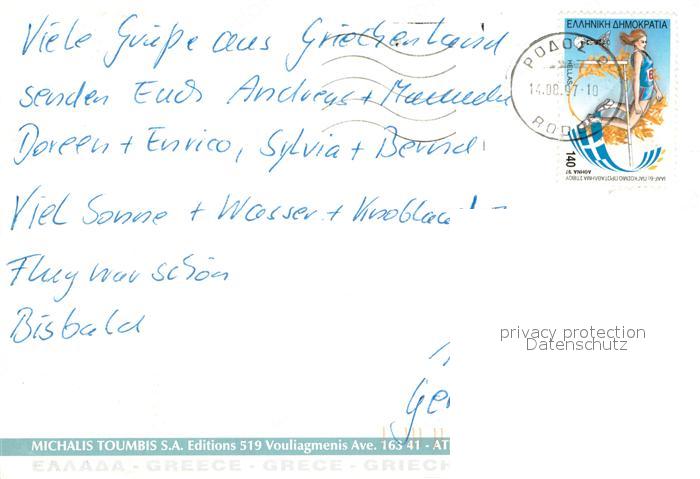 Viele Grüße aus Griechenland
senden Euch Andreas + Manuela
Doreen + Enrico, Sylvia + Bernd
Viel Sonne + Wasser + Knoblauch
Flug war schön
Bisbald
MICHALIS TOUMBIS S.A. Editions 519 Vouliagmenis Ave. 163 41 - AT
ΕΛΛΑΔΑ - GREECE - GRECE - GRIECH
ΕΛΛΗΝΙΚΗ ΔΗΜΟΚΡΑΤΙΑ
HELLAS
140
ΡΟΔΟΣ
14.08.97-10
RODOS
privacy protection
Datenschutz